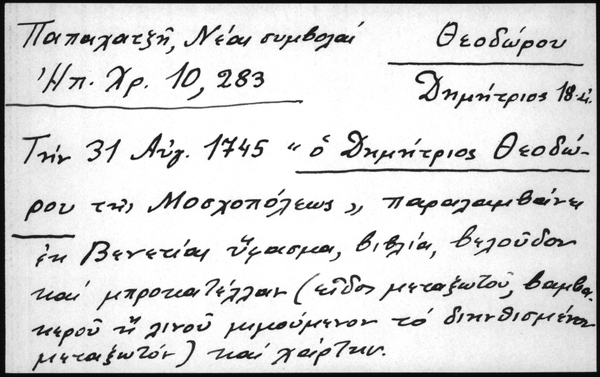 Παπαχατζῆ, Νέαι συμβολαί
Ἠπ. Χρ. 10, 283
Θεοδώρου
Δημήτριος 18.αἰ.
Τήν 31 Αὐγ. 1745 "ὁ Δημήτριος Θεοδώ-
ρου τῆς Μοσχοπόλεως" παραλαμβάνει
ἐκ Βενετίας ὕφασμα, βιβλία, βελοῦδον
καί μπροκατέλλαν (εἶδος μεταξωτοῦ, βαμβα-
κεροῦ ἤ λινοῦ μιμούμενον τό διηνθισμένον
μεταξωτόν) καί χάρτην.